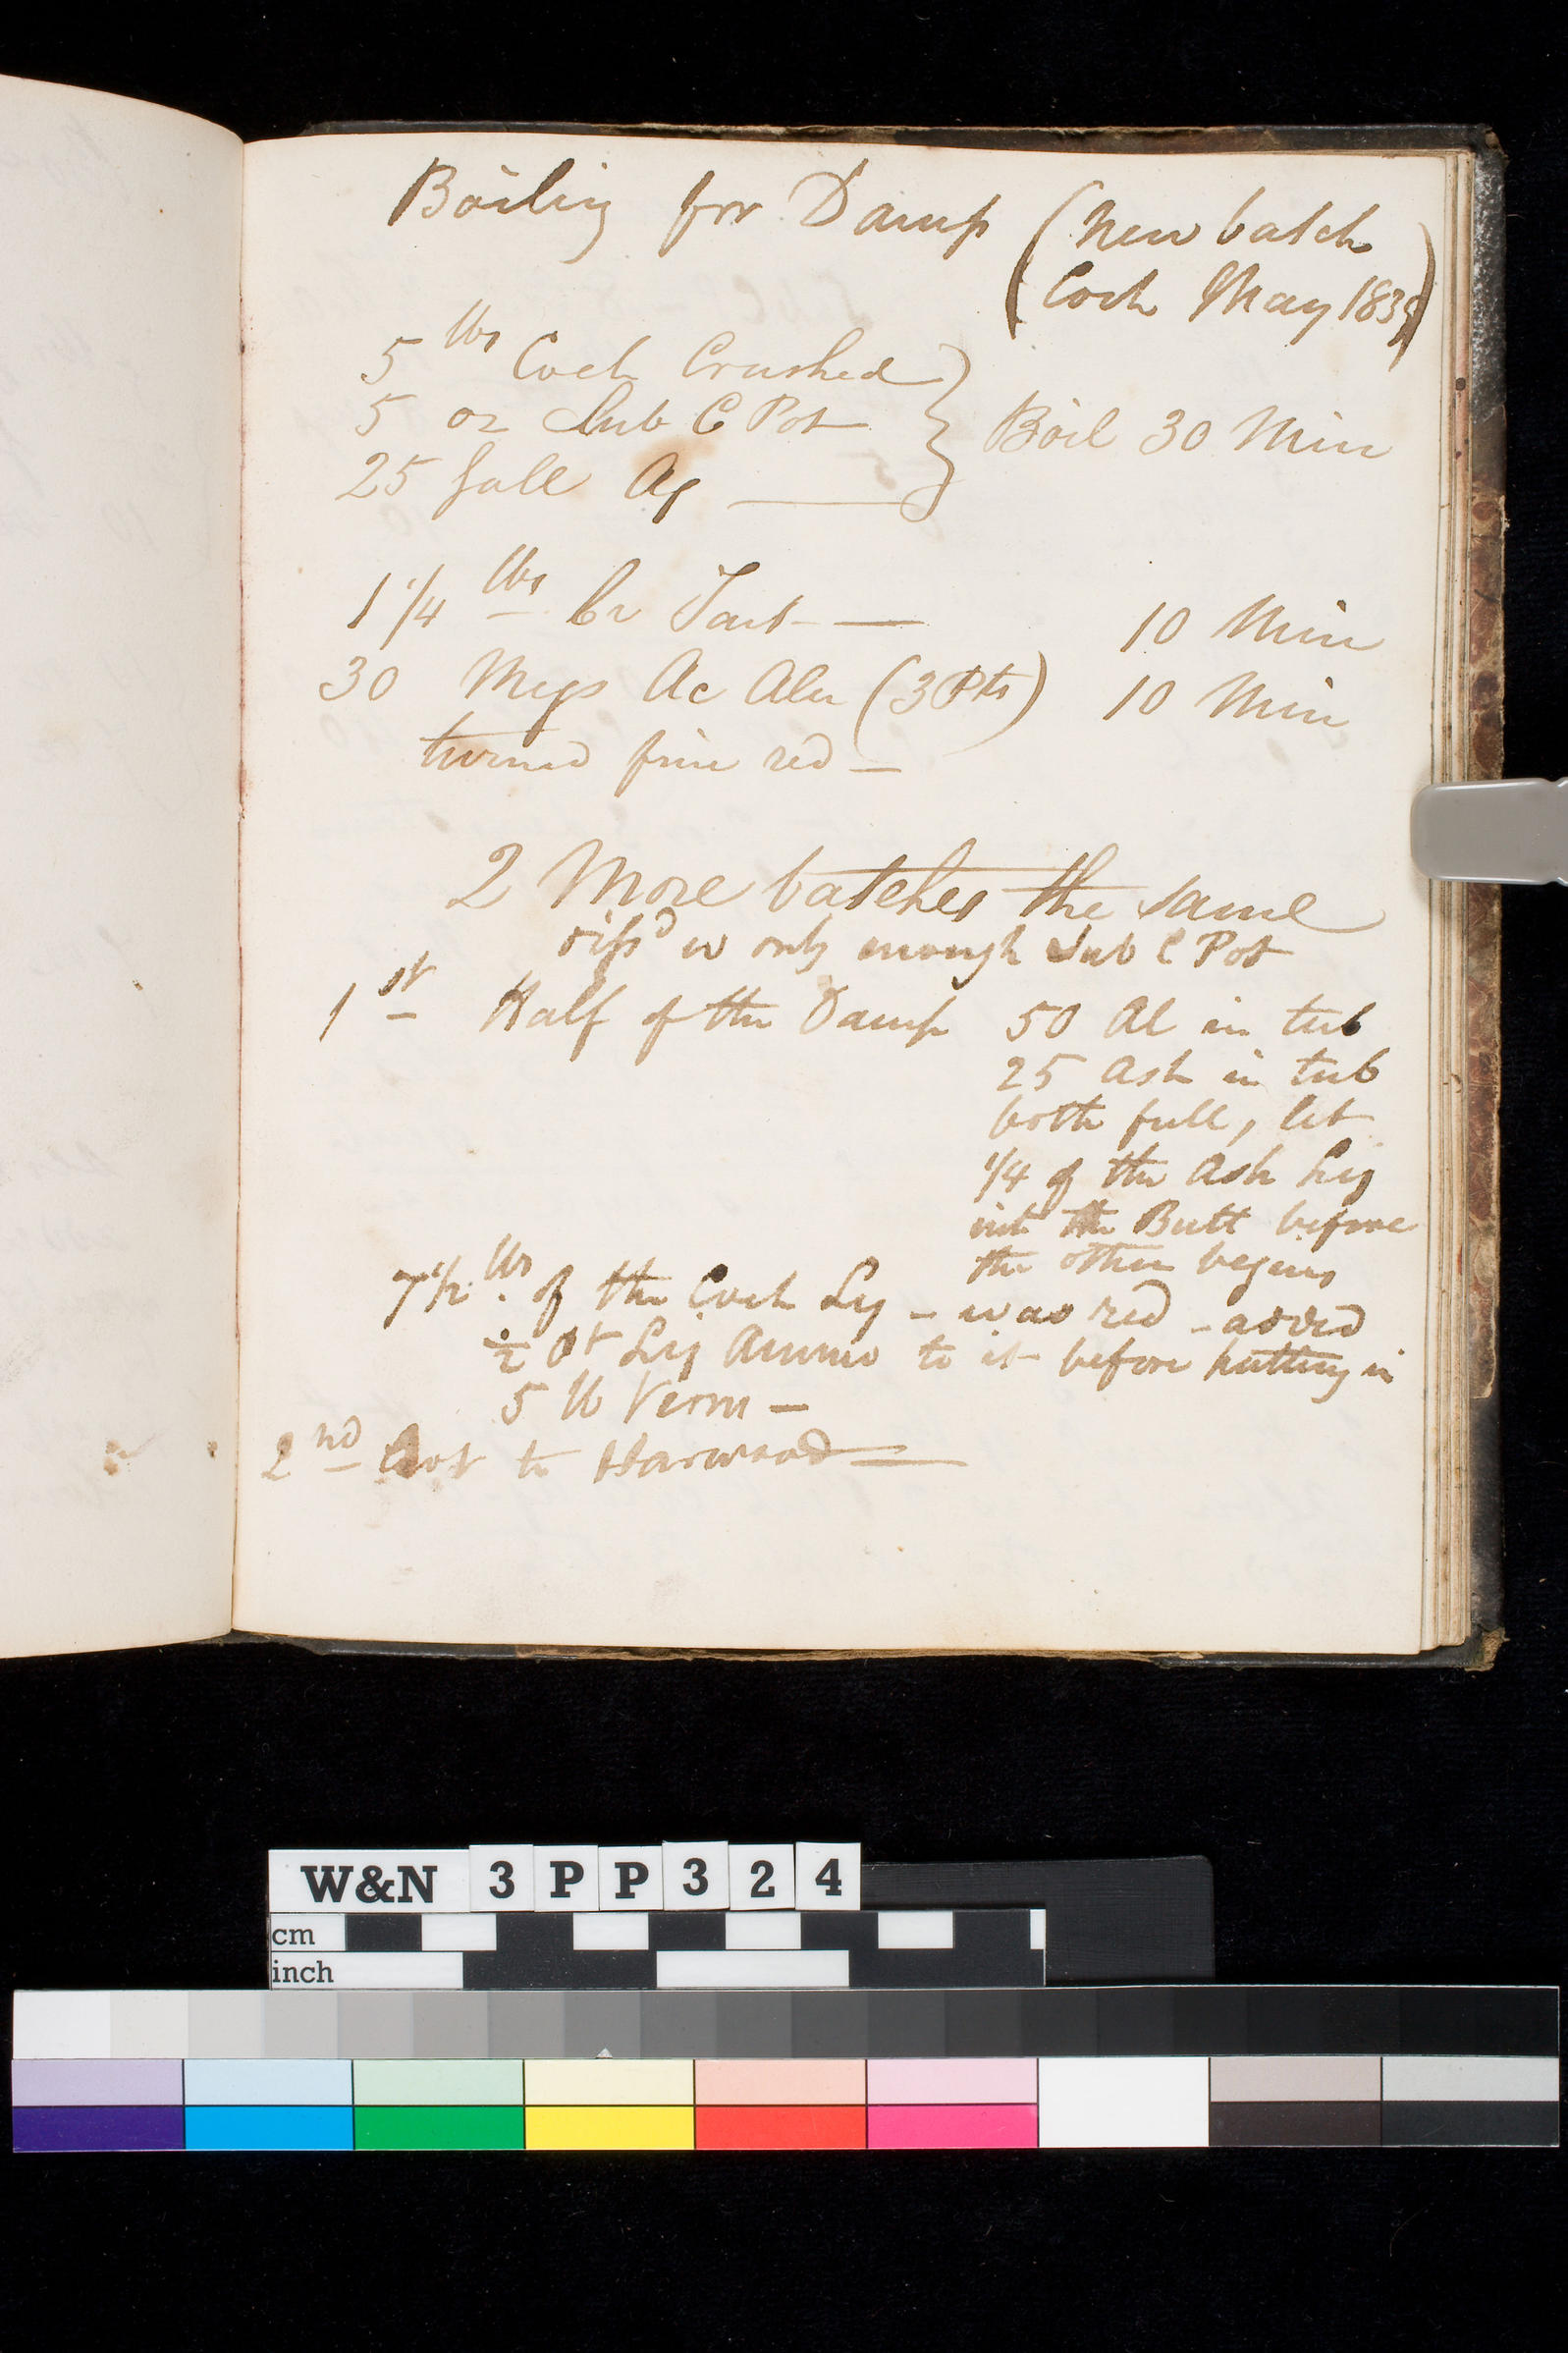 Boiling for Damp (New batch
Coch May 1835)
5 lbs Coch Crushed
5 oz Sub C Pot } Boil 30 Min
25 Gall Aq
1 1/4 lbs Cr Tart — 10 Min
30 Megs Ac Alu (3 Pts) 10 Min
turned fine red —
2 More batches the same
w only enough Sub C Pot
1st Half of the Damp 50 Al in tub
25 Ash in tub
both full, let
1/4 of the Ash Liq
into the Butt before
the other begins
7 1/2 lbs. of the Coch Liq — was red — added
1/2 Pt Liq Ammo to it before putting in
5 lb Verm —
2nd Lot to Harwood
W&N 3PP324
cm
inch